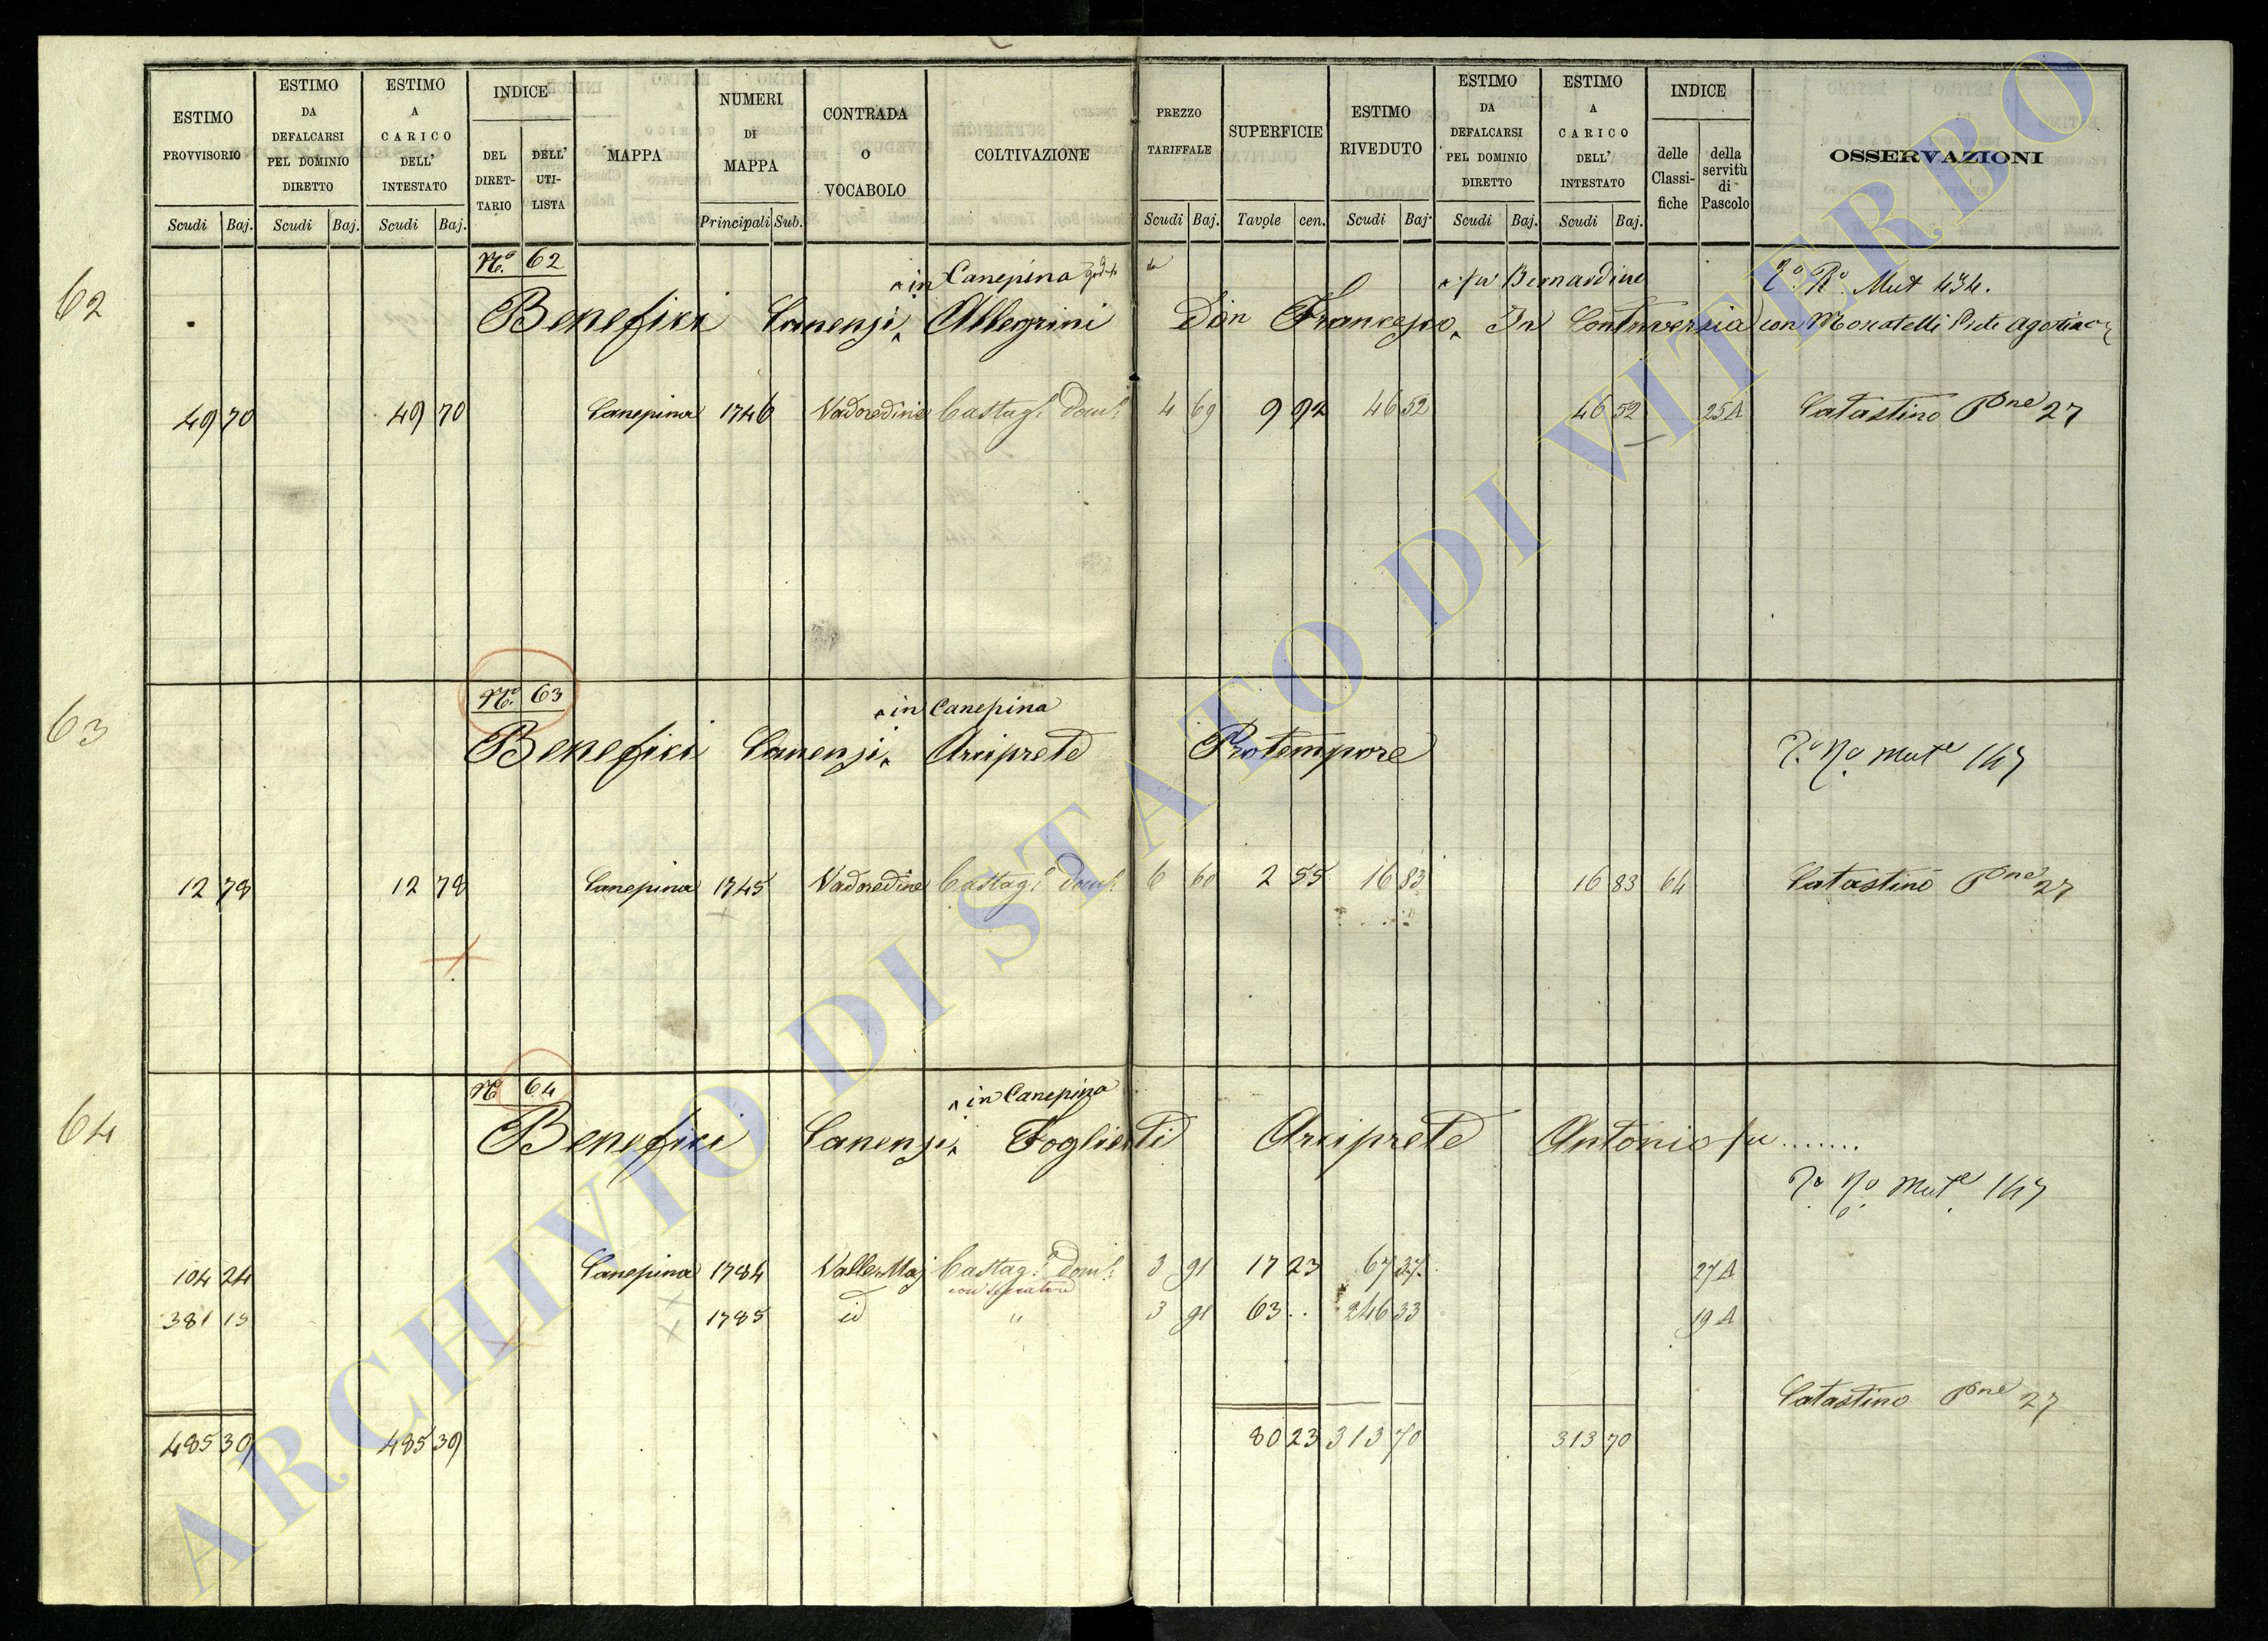 ESTIMO PROVVISORIO
ESTIMO DA DEFALCARSI PEL DOMINIO DIRETTO
ESTIMO A CARICO DELL' INTESTATO
INDICE
DEL DIRET- TARIO
DELL' UTI- LISTA
MAPPA
NUMERI DI MAPPA
CONTRADA O VOCABOLO
COLTIVAZIONE
PREZZO TARIFFALE
SUPERFICIE
ESTIMO RIVEDUTO
ESTIMO DA DEFALCARSI PEL DOMINIO DIRETTO
ESTIMO A CARICO DELL' INTESTATO
INDICE
delle Classi- fiche
della servitù di Pascolo
OSSERVAZIONI
Scudi Baj. Scudi Baj. Scudi Baj. Principali Sub. Scudi Baj. Tavole cen. Scudi Baj. Scudi Baj. Scudi Baj.
62
N.° 62
in Canepina
fu Bernardino
Mut 434.
Benefici Canensi, Allegrini Don Francesco, In Controversia con Moscatelli Prete Agostino
49 70 49 70 Canepina 1746 Vadoredine Castag. Dom. 4 69 9 92 46 52 46 52 25A Catastino Pne 27
63
N.° 63
in Canepina
Benefici Canensi, Arciprete Protempore
Mute 147
12 78 12 78 Canepina 1745 Vadoredine Castag. Dom. 6 60 2 55 16 83 16 83 64 Catastino Pne 27
64
N.° 64
in Canepina
Benefici Canensi, Foglietti Arciprete Antonio fu .......
Mute 147
104 24 Canepina 1784 Valle Maj Castag. Dom. 3 91 17 23 67 37 27A
381 15 1785 id " 3 91 63 .. 246 33 19A
Catastino Pne 27
485 39 485 39 80 23 313 70 313 70
ARCHIVIO DI STATO DI VITERBO